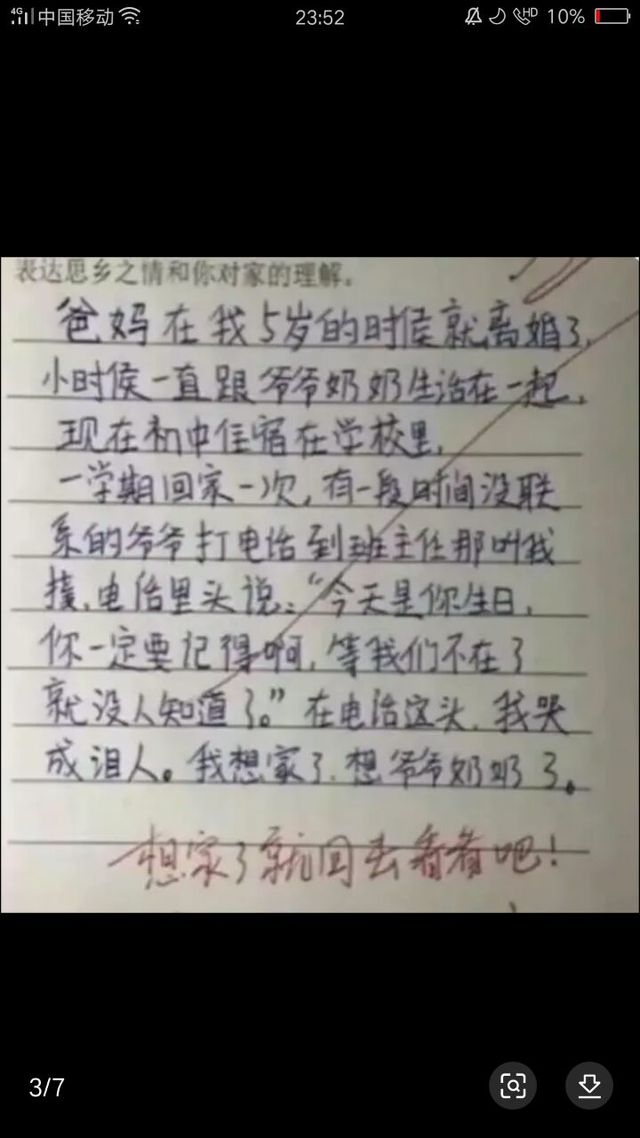 4G 中国移动 23:52 HD 10%
表达思乡之情和你对家的理解。
爸妈在我5岁的时候就离婚了,
小时侯一直跟爷爷奶奶生活在一起,
现在初中住宿在学校里,
一学期回家一次,有一段时间没联
系的爷爷打电话到班主任那叫我
接,电话里头说:“今天是你生日,
你一定要记得啊,等我们不在了
就没人知道了。”在电话这头,我哭
成泪人。我想家了,想爷爷奶奶了。
想家了就回去看看吧!
3/7